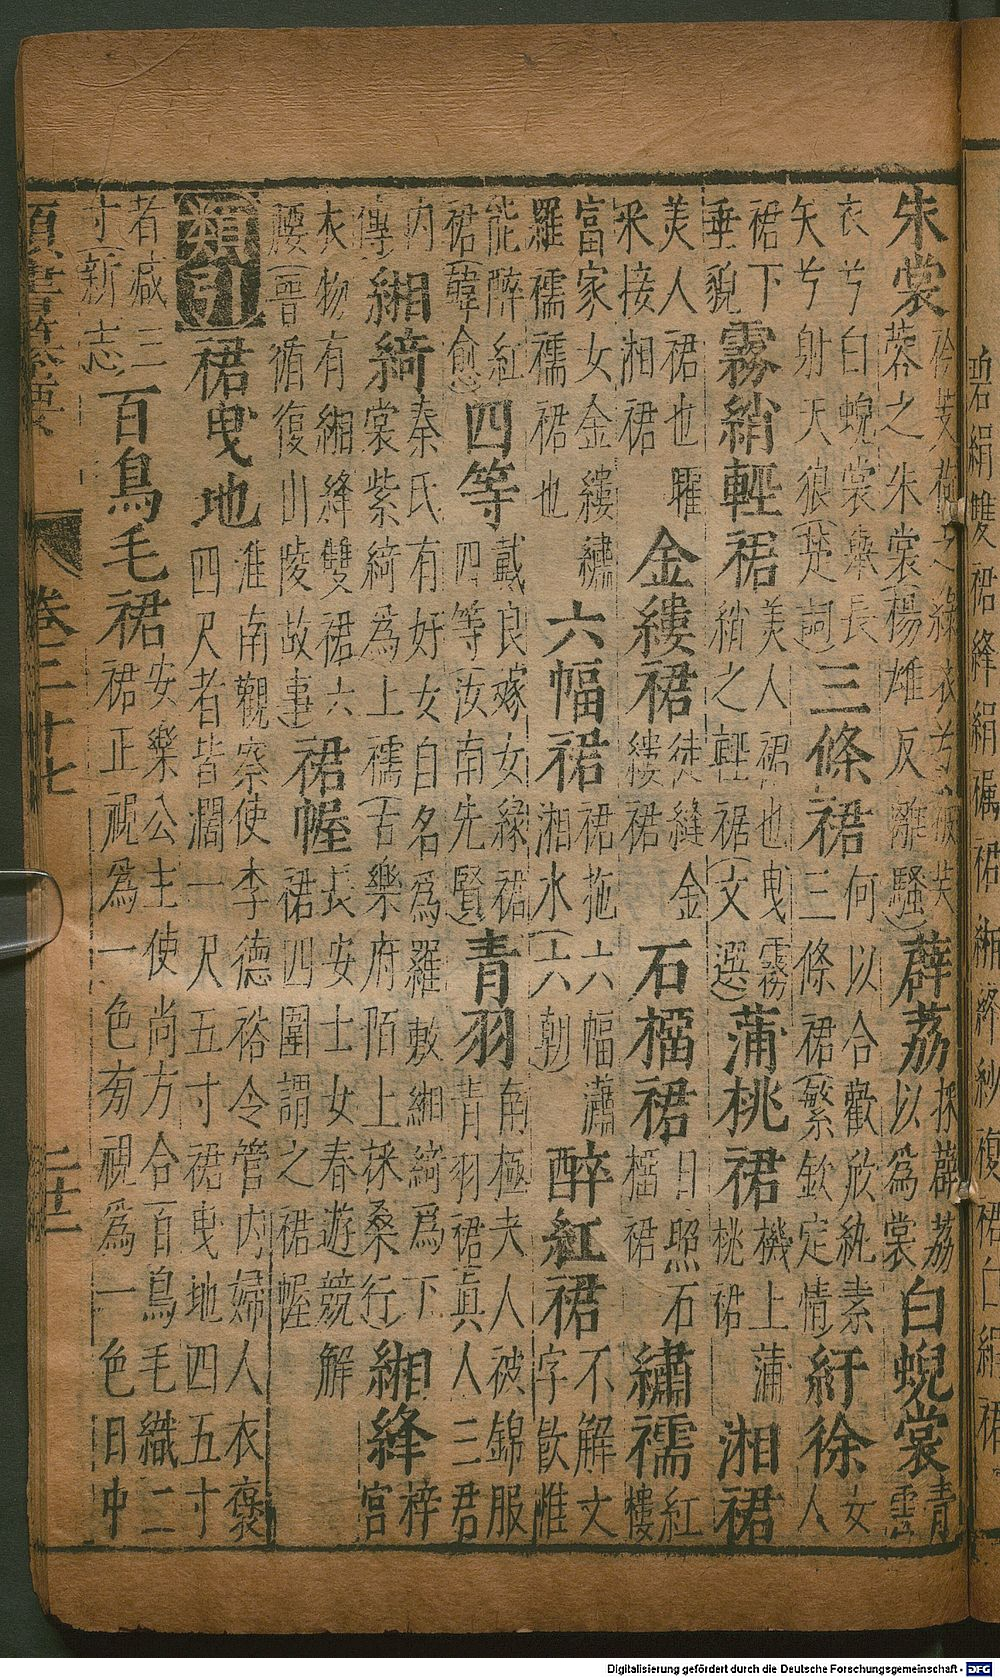 朱裳 衿芰荷之綠衣兮被芙蓉之朱裳(楊雄反離騷) 薜荔 採薜荔以爲裳 白蜺裳 青雲
衣兮白蜺裳舉長矢兮射天狼(楚詞) 三條裙 何以合歡欣紈素三條裙(繁欽定情) 紆徐 女人
裙下垂貌 霧綃輕裾 美人裾也曳霧綃之輕裾(文選) 蒲桃裙 機上蒲桃裙 湘裙
美人裙也躍采接湘裙 金縷裙 徒縫金縷裙 石榴裙 日照石榴裙 繡襦 紅樓
富家女金縷繡羅襦襦裙也 六幅裙 裙拖六幅瀟湘水(六朝) 醉紅裙 不解文字飮惟
能醉紅裙(韓愈) 四等 戴良嫁女緣裙四等(汝南先賢) 青羽 南極夫人被錦服青羽裙眞人三君
內傳 緗綺 秦氏有好女自名爲羅敷緗綺爲下裳紫綺爲上襦(古樂府陌上採桑行) 緗絳 梓宮
衣物有緗絳雙裙六腰(晉循復山陵故事) 裙幄 長安士女春遊競解裙四圍謂之裙幄
類引 裙曳地 淮南觀察使李德裕令管內婦人衣褒四尺者皆濶一尺五寸裙曳地四五寸
者減三寸(新志) 百鳥毛裙 安樂公主使尚方合百鳥毛織二裙正視爲一色旁視爲一色日中
卷三十七 二十二
碧絹雙裙絳絹襦裙緗絳紗複裙白絹裙
Digitalisierung gefördert durch die Deutsche Forschungsgemeinschaft - DFG